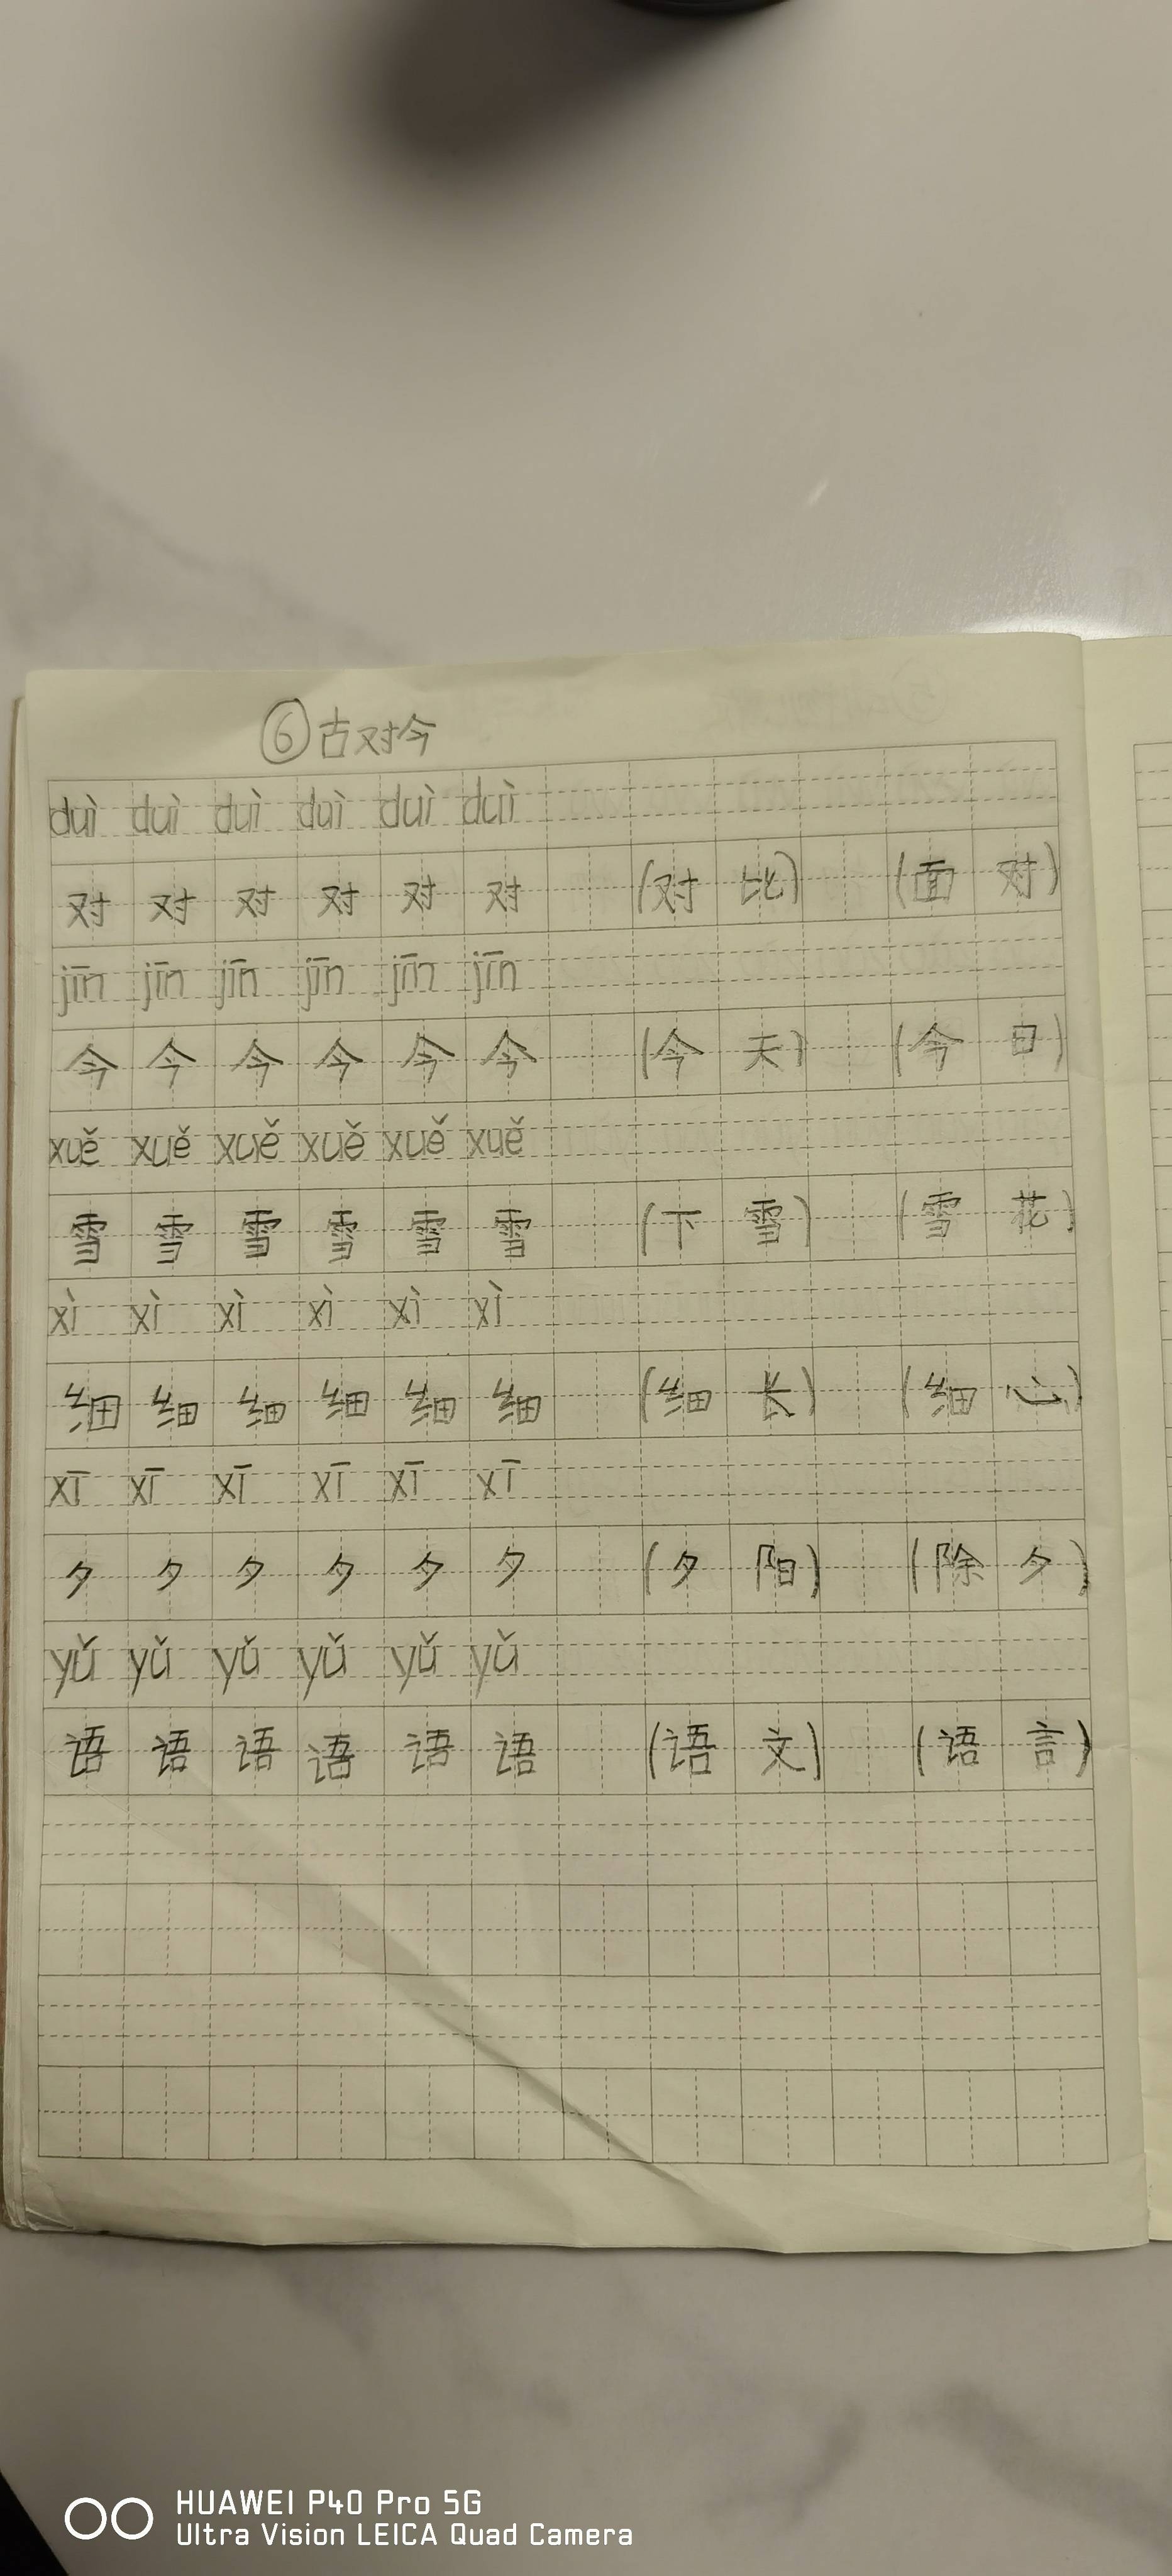 ⑥古对今
duì duì duì duì duì duì
对 对 对 对 对 对 (对 比) (面 对)
jīn jīn jīn jīn jīn jīn
今 今 今 今 今 今 (今 天) (今 日)
xuě xuě xuě xuě xuě xuě
雪 雪 雪 雪 雪 雪 (下 雪) (雪 花)
xì xì xì xì xì xì
细 细 细 细 细 细 (细 长) (细 心)
xī xī xī xī xī xī
夕 夕 夕 夕 夕 夕 (夕 阳) (除 夕)
yǔ yǔ yǔ yǔ yǔ yǔ
语 语 语 语 语 语 (语 文) (语 言)
HUAWEI P40 Pro 5G
Ultra Vision LEICA Quad Camera